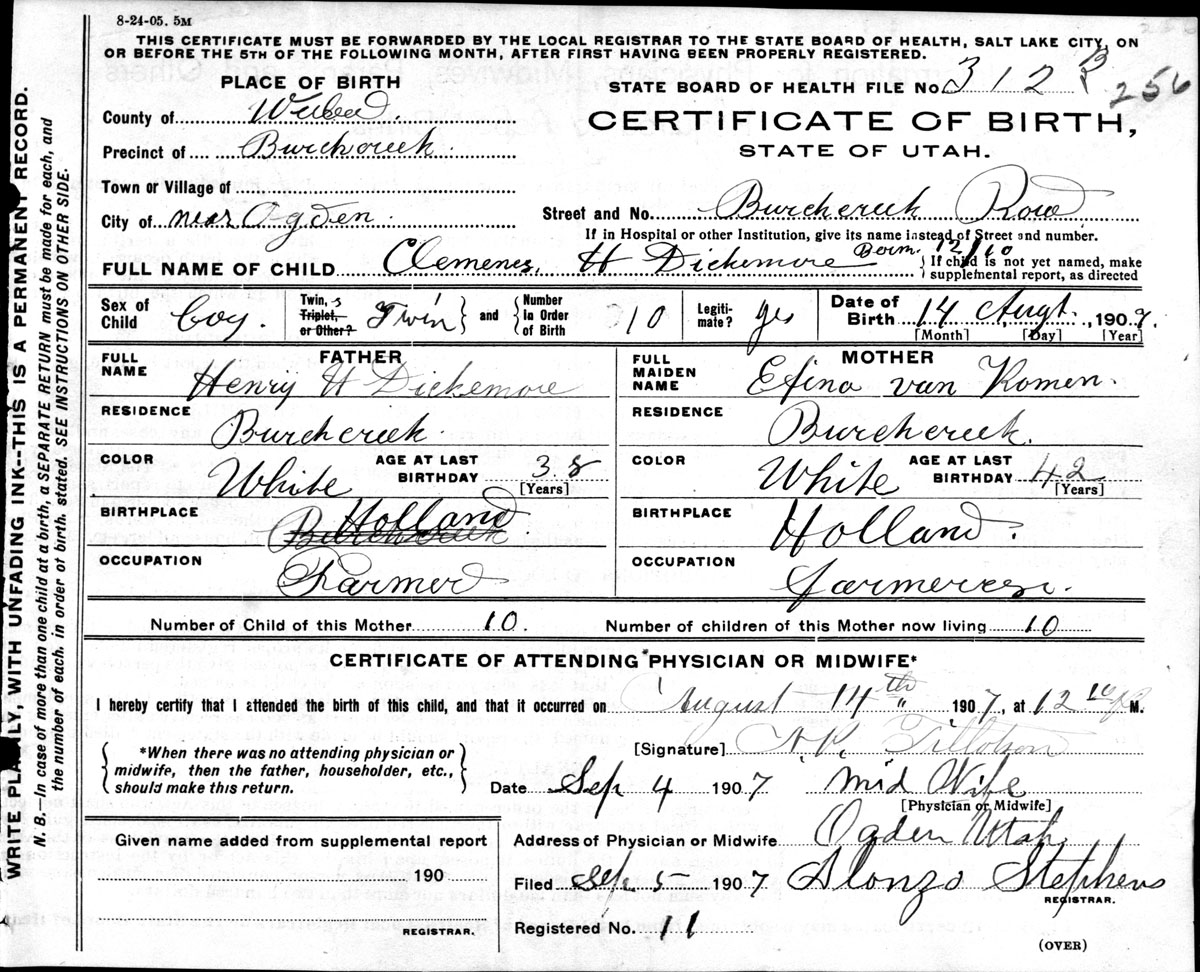 8-24-05. 5M
THIS CERTIFICATE MUST BE FORWARDED BY THE LOCAL REGISTRAR TO THE STATE BOARD OF HEALTH, SALT LAKE CITY, ON
OR BEFORE THE 5TH OF THE FOLLOWING MONTH, AFTER FIRST HAVING BEEN PROPERLY REGISTERED.
PLACE OF BIRTH
STATE BOARD OF HEALTH FILE No. 312 B 256
County of Weber
CERTIFICATE OF BIRTH,
STATE OF UTAH.
Precinct of Burchcreek.
Town or Village of
City of near Ogden.
Street and No. Burchcreek Row
If in Hospital or other Institution, give its name instead of Street and number.
FULL NAME OF CHILD Clemenes, H Dickemore Born 12/10
If child is not yet named, make
supplemental report, as directed
Sex of Child boy.
Twin, Triplet, or Other? Twin
and Number In Order of Birth 10
Legiti-mate? yes
Date of Birth 14 Augt. , 1907.
[Month] [Day] [Year]
FATHER
FULL NAME Henry H Dickemore
RESIDENCE Burchcreek.
COLOR White AGE AT LAST BIRTHDAY 38 [Years]
BIRTHPLACE Holland
OCCUPATION Farmer
MOTHER
FULL MAIDEN NAME Efina van Komen.
RESIDENCE Burchcreek.
COLOR White AGE AT LAST BIRTHDAY 42 [Years]
BIRTHPLACE Holland.
OCCUPATION farmeress.
Number of Child of this Mother 10.
Number of children of this Mother now living 10
CERTIFICATE OF ATTENDING PHYSICIAN OR MIDWIFE*
I hereby certify that I attended the birth of this child, and that it occurred on August 14th 1907, at 12 10 M.
*When there was no attending physician or
midwife, then the father, householder, etc.,
should make this return.
[Signature] Tillotson
Date Sep 4 1907 Mid Wife
[Physician or Midwife]
Given name added from supplemental report
190
REGISTRAR.
Address of Physician or Midwife Ogden Utah
Filed Sep. 5 1907 Alonzo Stephens
REGISTRAR.
Registered No. 11
(OVER)
WRITE PLAINLY, WITH UNFADING INK--THIS IS A PERMANENT RECORD.
N. B.—In case of more than one child at a birth, a SEPARATE RETURN must be made for each, and
the number of each, in order of birth, stated. SEE INSTRUCTIONS ON OTHER SIDE.